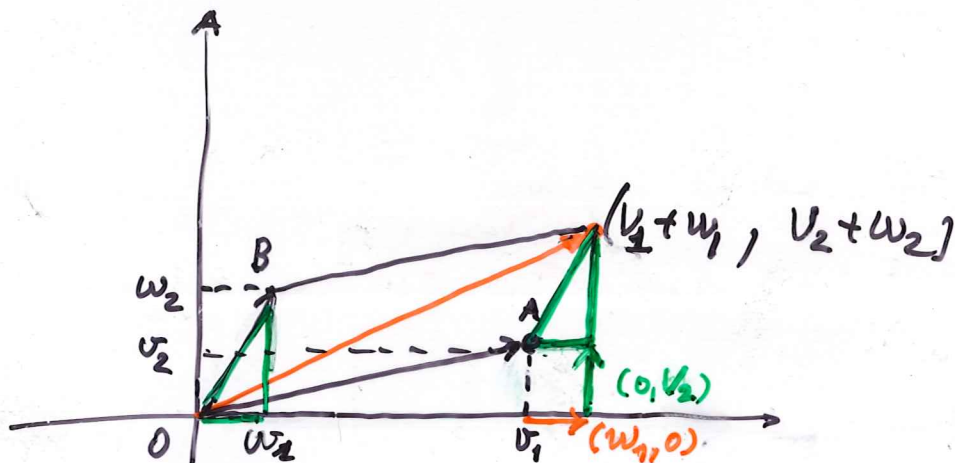 A
(V₁+W₁, V₂+W₂)
B
w₂
A
v₂
(0,V₂)
O
w₁
v₁
(W₁,0)